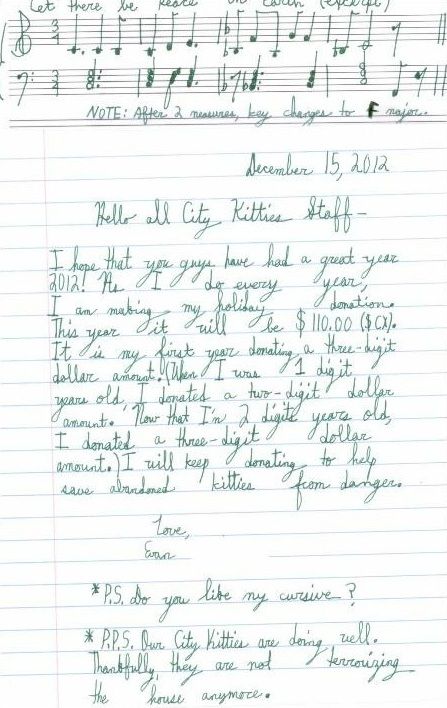 Let there be Peace on Earth (excerpt)
NOTE: After 2 measures, key changes to F major.
December 15, 2012
Hello all City Kitties Staff-
I hope that you guys have had a great year
2012! As I do every year,
I am making my holiday donation.
This year it will be $110.00 ($CX).
It is my first year donating a three-digit
dollar amount. (When I was 1 digit
years old, I donated a two-digit dollar
amount. Now that I'm 2 digits years old,
I donated a three-digit dollar
amount.) I will keep donating to help
save abandoned kitties from danger.
Love,
Evan
*P.S. Do you like my cursive?
* P.P.S. Our City Kitties are doing well.
Thankfully, they are not terrorizing
the house anymore.